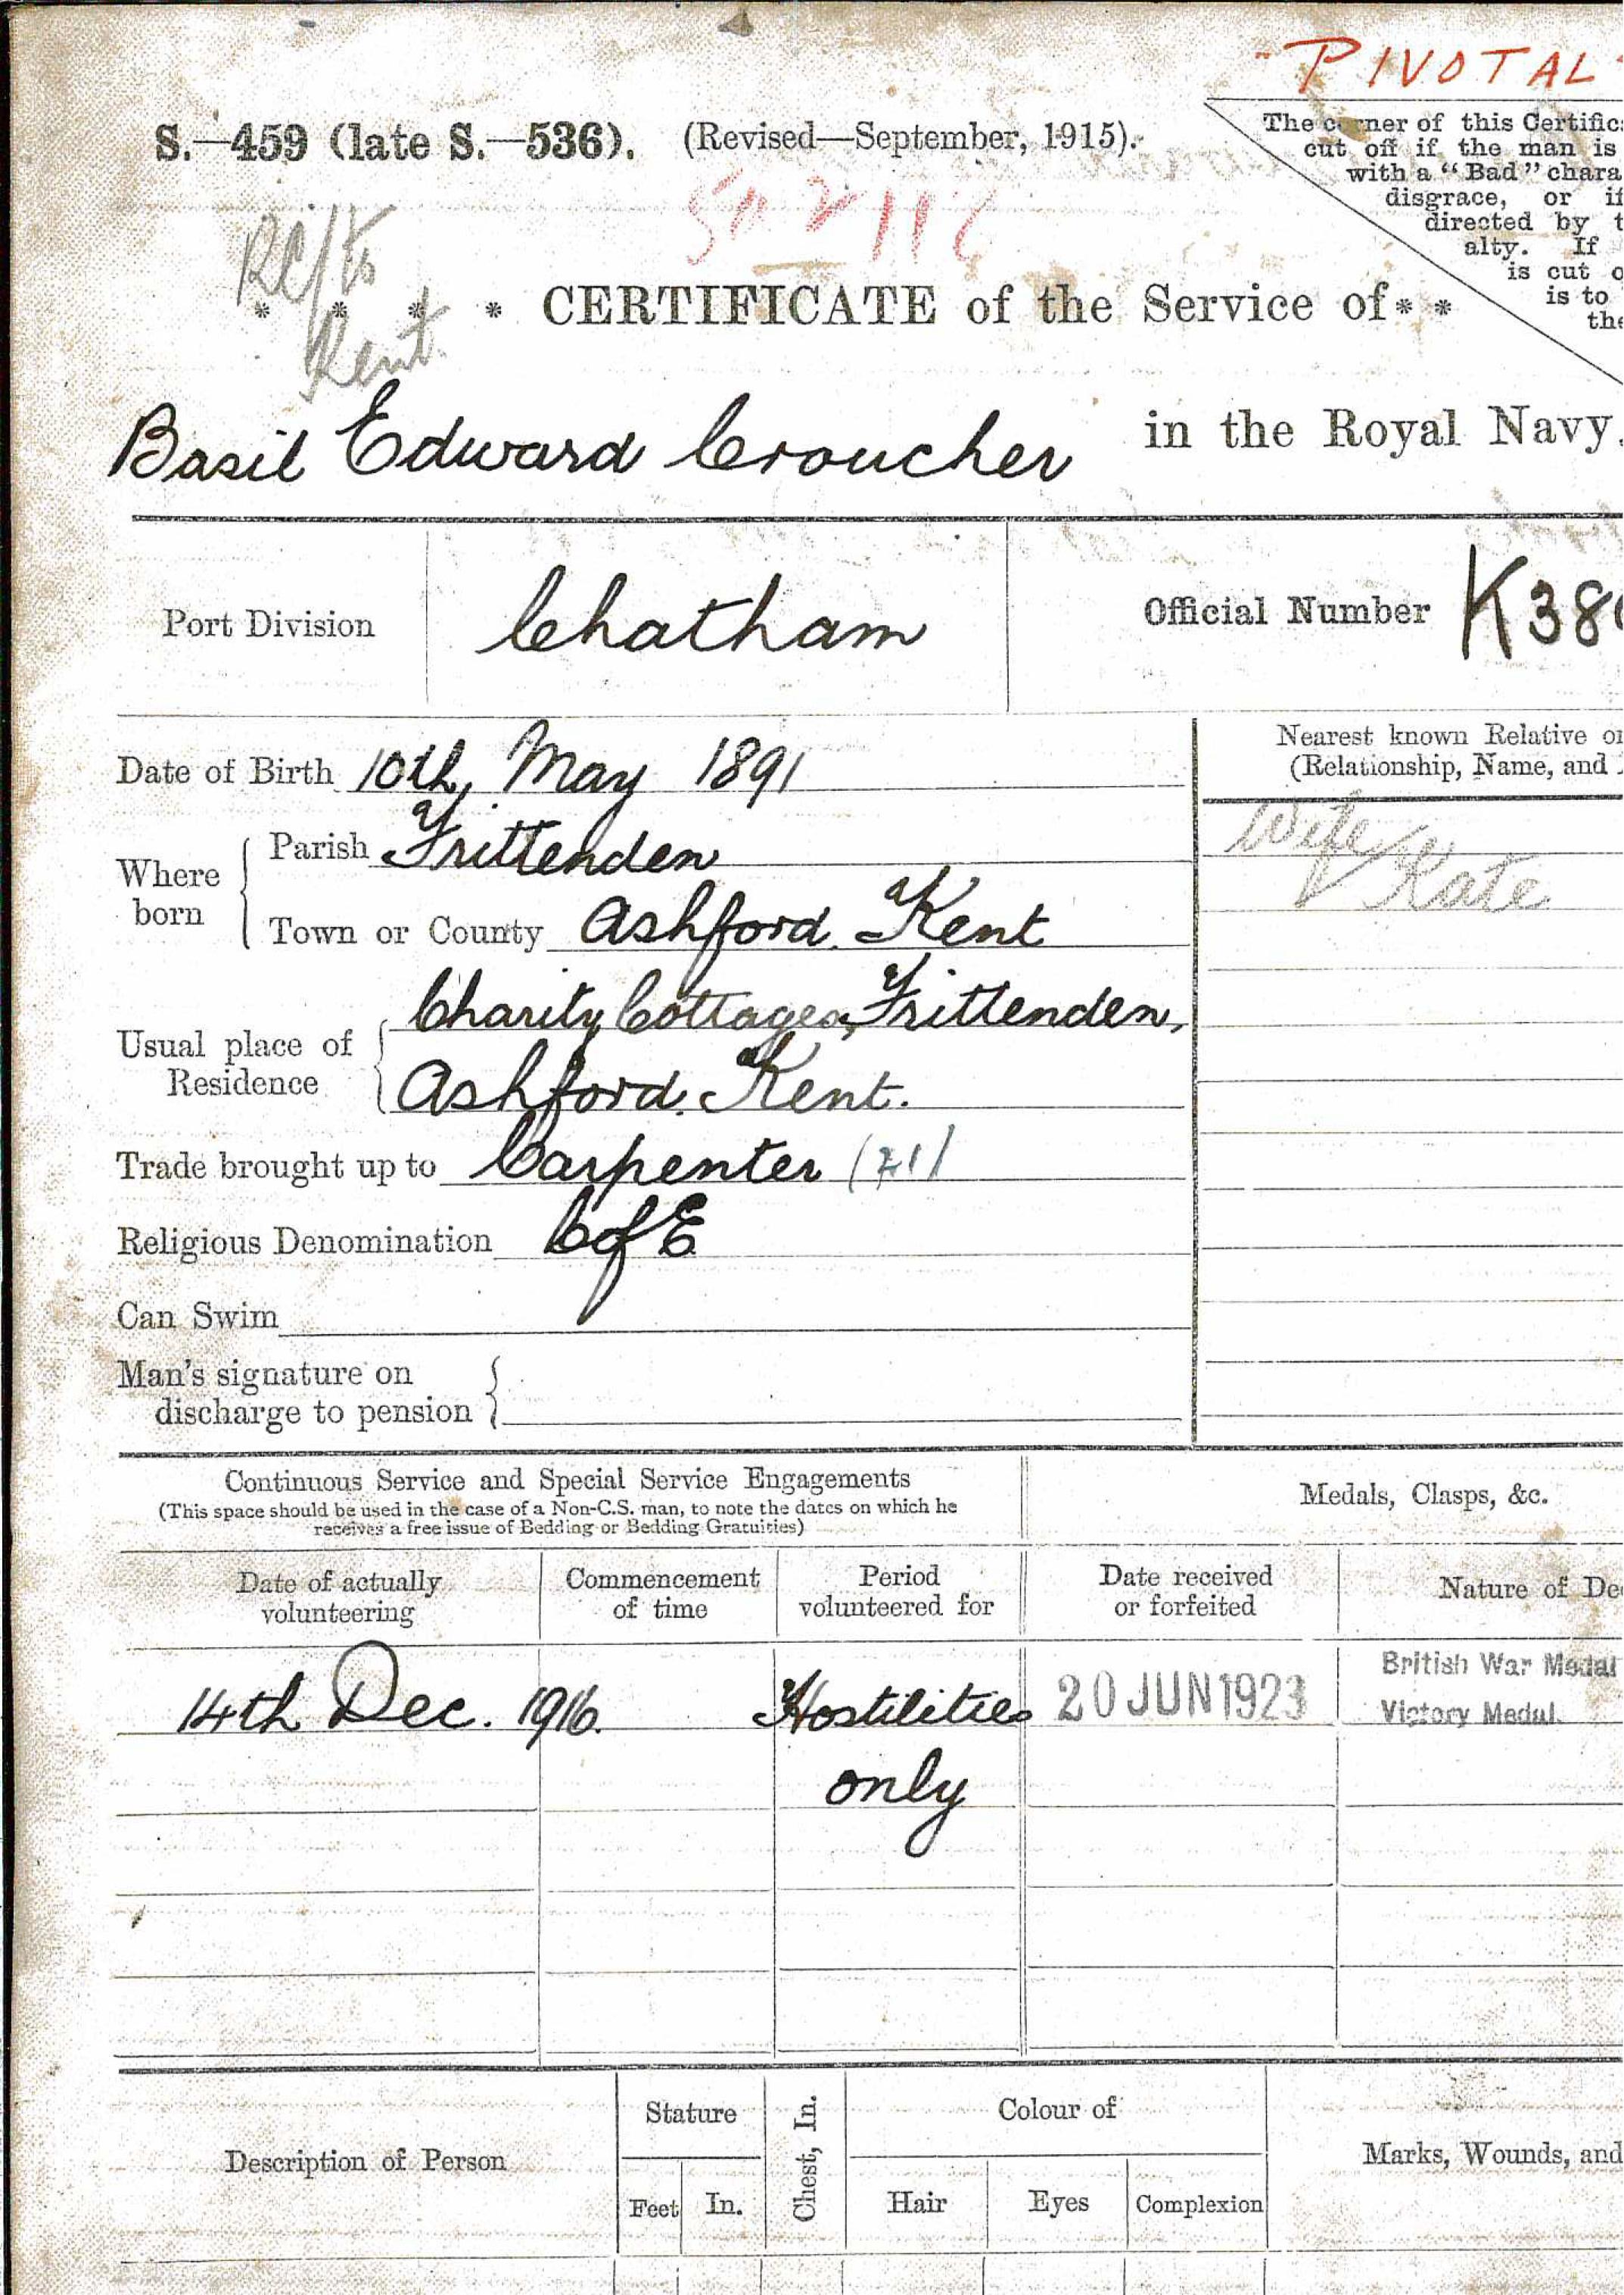 "PIVOTAL"
S.—459 (late S.—536). (Revised—September, 1915).
The corner of this Certific
cut off if the man is
with a "Bad" chara
disgrace, or if
directed by t
alty. If
is cut o
is to
the
Kent.
* * * * CERTIFICATE of the Service of * *
Basil Edward Croucher in the Royal Navy.
Port Division Chatham Official Number K38
Date of Birth 10th May 1891
Nearest known Relative or
(Relationship, Name, and
Where born
Parish Frittenden
Wife Kate
Town or County Ashford. Kent
Usual place of Residence
Charity Cottages, Frittenden,
Ashford. Kent.
Trade brought up to Carpenter (21)
Religious Denomination C of E
Can Swim
Man's signature on
discharge to pension
Continuous Service and Special Service Engagements
(This space should be used in the case of a Non-C.S. man, to note the dates on which he
receives a free issue of Bedding or Bedding Gratuities)
Medals, Clasps, &c.
Date of actually volunteering
Commencement of time
Period volunteered for
Date received or forfeited
Nature of De
14th Dec. 1916. Hostilities 20 JUN 1923 British War Medal
Victory Medal.
only
Description of Person
Stature
Chest, In.
Colour of
Marks, Wounds, and
Feet In. Hair Eyes Complexion